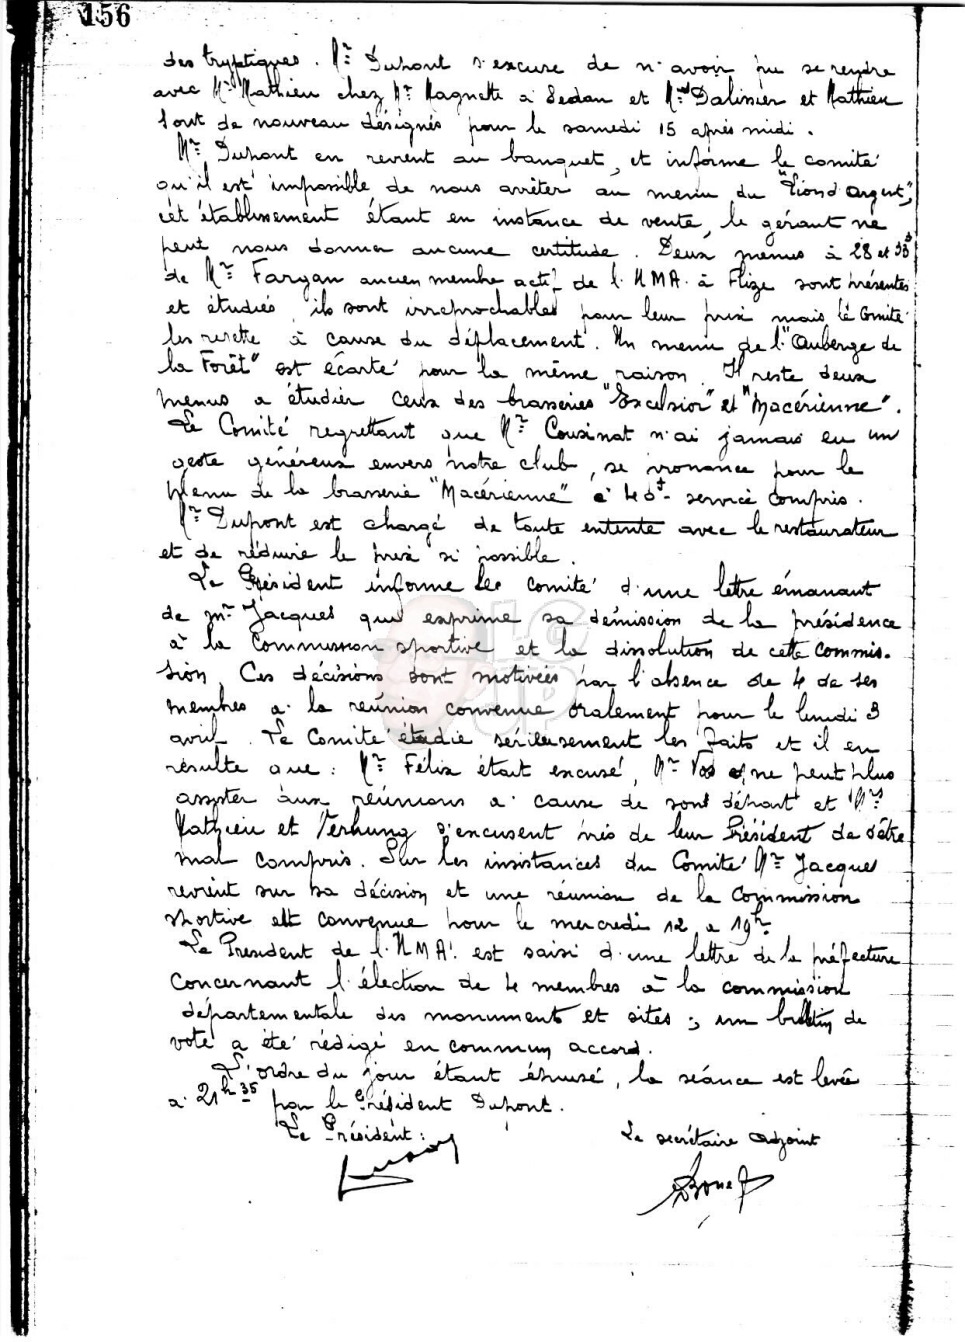 156
des tryptiques. Mr Dupont s'excuse de n'avoir pu se rendre
avec Mr Mathieu chez Mr Magnette à Sedan et Mrs Dalinier et Mathieu
sont de nouveau désignés pour le samedi 15 après midi.
Mr Dupont en revient au banquet, et informe le comité
qu'il est impossible de nous arrêter au menu du "Lion d'Argent",
cet établissement étant en instance de vente, le gérant ne
peut nous donner aucune certitude. Deux menus à 28 et
de Mr Fargan ancien membre actif de l'UMA. à Flize sont présentés
et étudiés, ils sont irréprochables pour leur prix mais le Comité
les rejette à cause du déplacement. Un menu de l'"Auberge de
la Forêt" est écarté pour la même raison. Il reste deux
menus a étudier ceux des brasseries "Excelsior" et "Macérienne".
Le Comité regrettant que Mr Cousinat n'ai jamais eu un
geste généreux envers notre club, se prononce pour le
menu de la brasserie "Macérienne" à service compris.
Mr Dupont est chargé de toute entente avec le restaurateur
et de réduire le prix si possible.
Le Président informe le comité d'une lettre émanant
de Mr Jacques qui exprime sa démission de la présidence
à la commission sportive et la dissolution de cette commis-
sion. Ces décisions sont motivées par l'absence de 4 de ses
membres a la réunion convenue oralement pour le lundi 3
avril. Le Comité étudie sérieusement les faits et il en
résulte que: Mr Félix était excusé, Mr Vos ne peut plus
assister aux réunions a cause de son départ et Mrs
Mathieu et Verhung s'excusent près de leur Président de s'être
mal compris. Sur les insistances du Comité Mr Jacques
revient sur sa décision et une réunion de la Commission
sportive est convenue pour le mercredi 12 a 19h.
Le President de l'UMA. est saisi d'une lettre de la préfecture
concernant l'élection de 4 membres à la commission
départementale des monuments et sites; un bulletin de
vote a été rédigé en commun accord.
L'ordre du jour étant épuisé, la séance est levée
a 21h 35 par le Président Dupont.
Le Président: Le secrétaire adjoint
LGUP